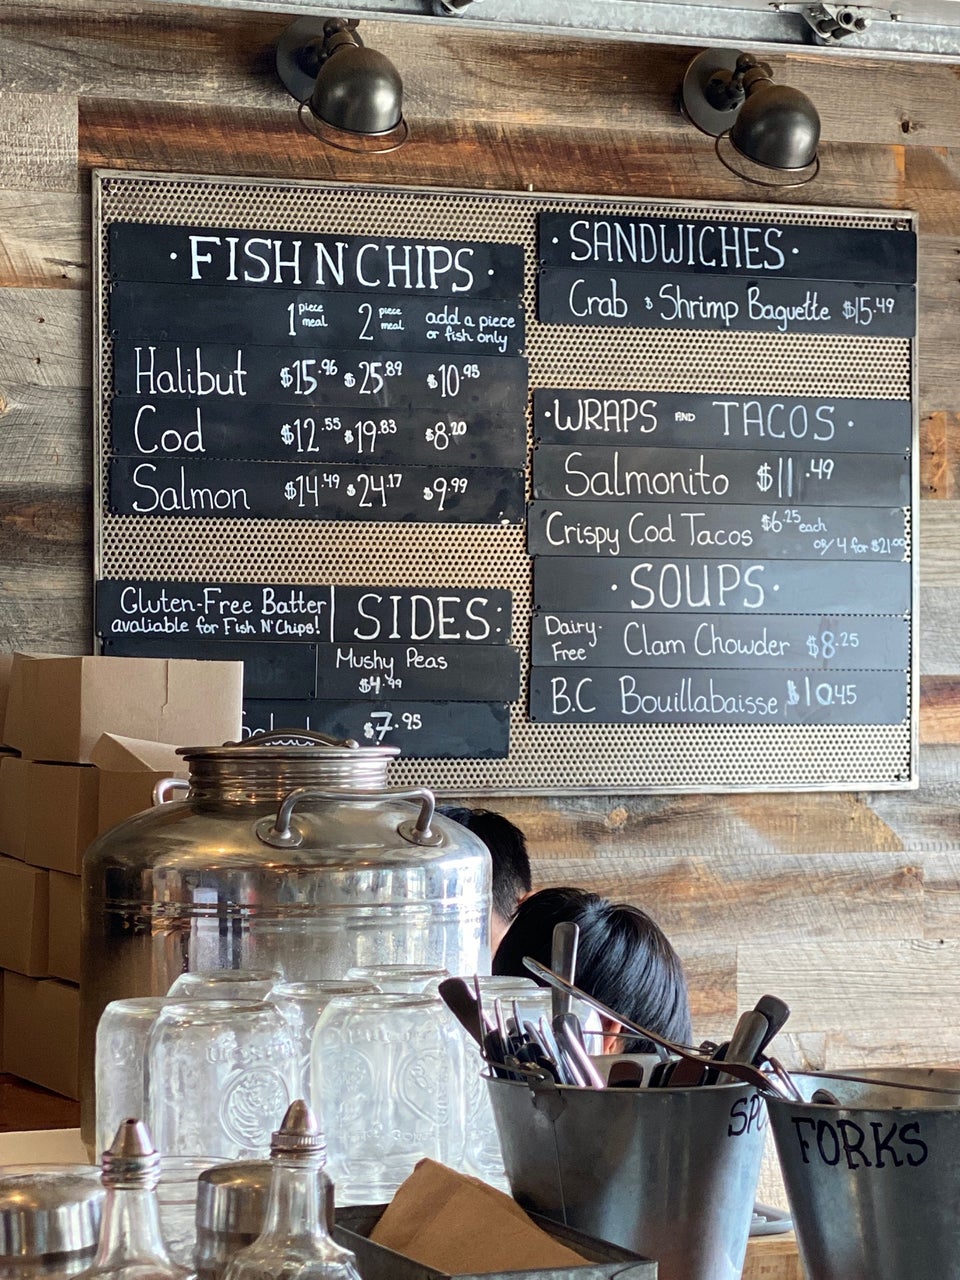 · FISH N' CHIPS ·
1 piece meal 2 piece meal add a piece or fish only
Halibut $15.96 $25.89 $10.95
Cod $12.55 $19.83 $8.20
Salmon $14.49 $24.17 $9.99
Gluten-Free Batter
avaliable for Fish N' Chips!
SIDES:
Mushy Peas
$4.49
$7.95
· SANDWICHES ·
Crab & Shrimp Baguette $15.49
· WRAPS AND TACOS ·
Salmonito $11.49
Crispy Cod Tacos $6.25 each
or/ 4 for $21.00
· SOUPS ·
Dairy-Free Clam Chowder $8.25
B.C Bouillabaisse $10.45
FORKS